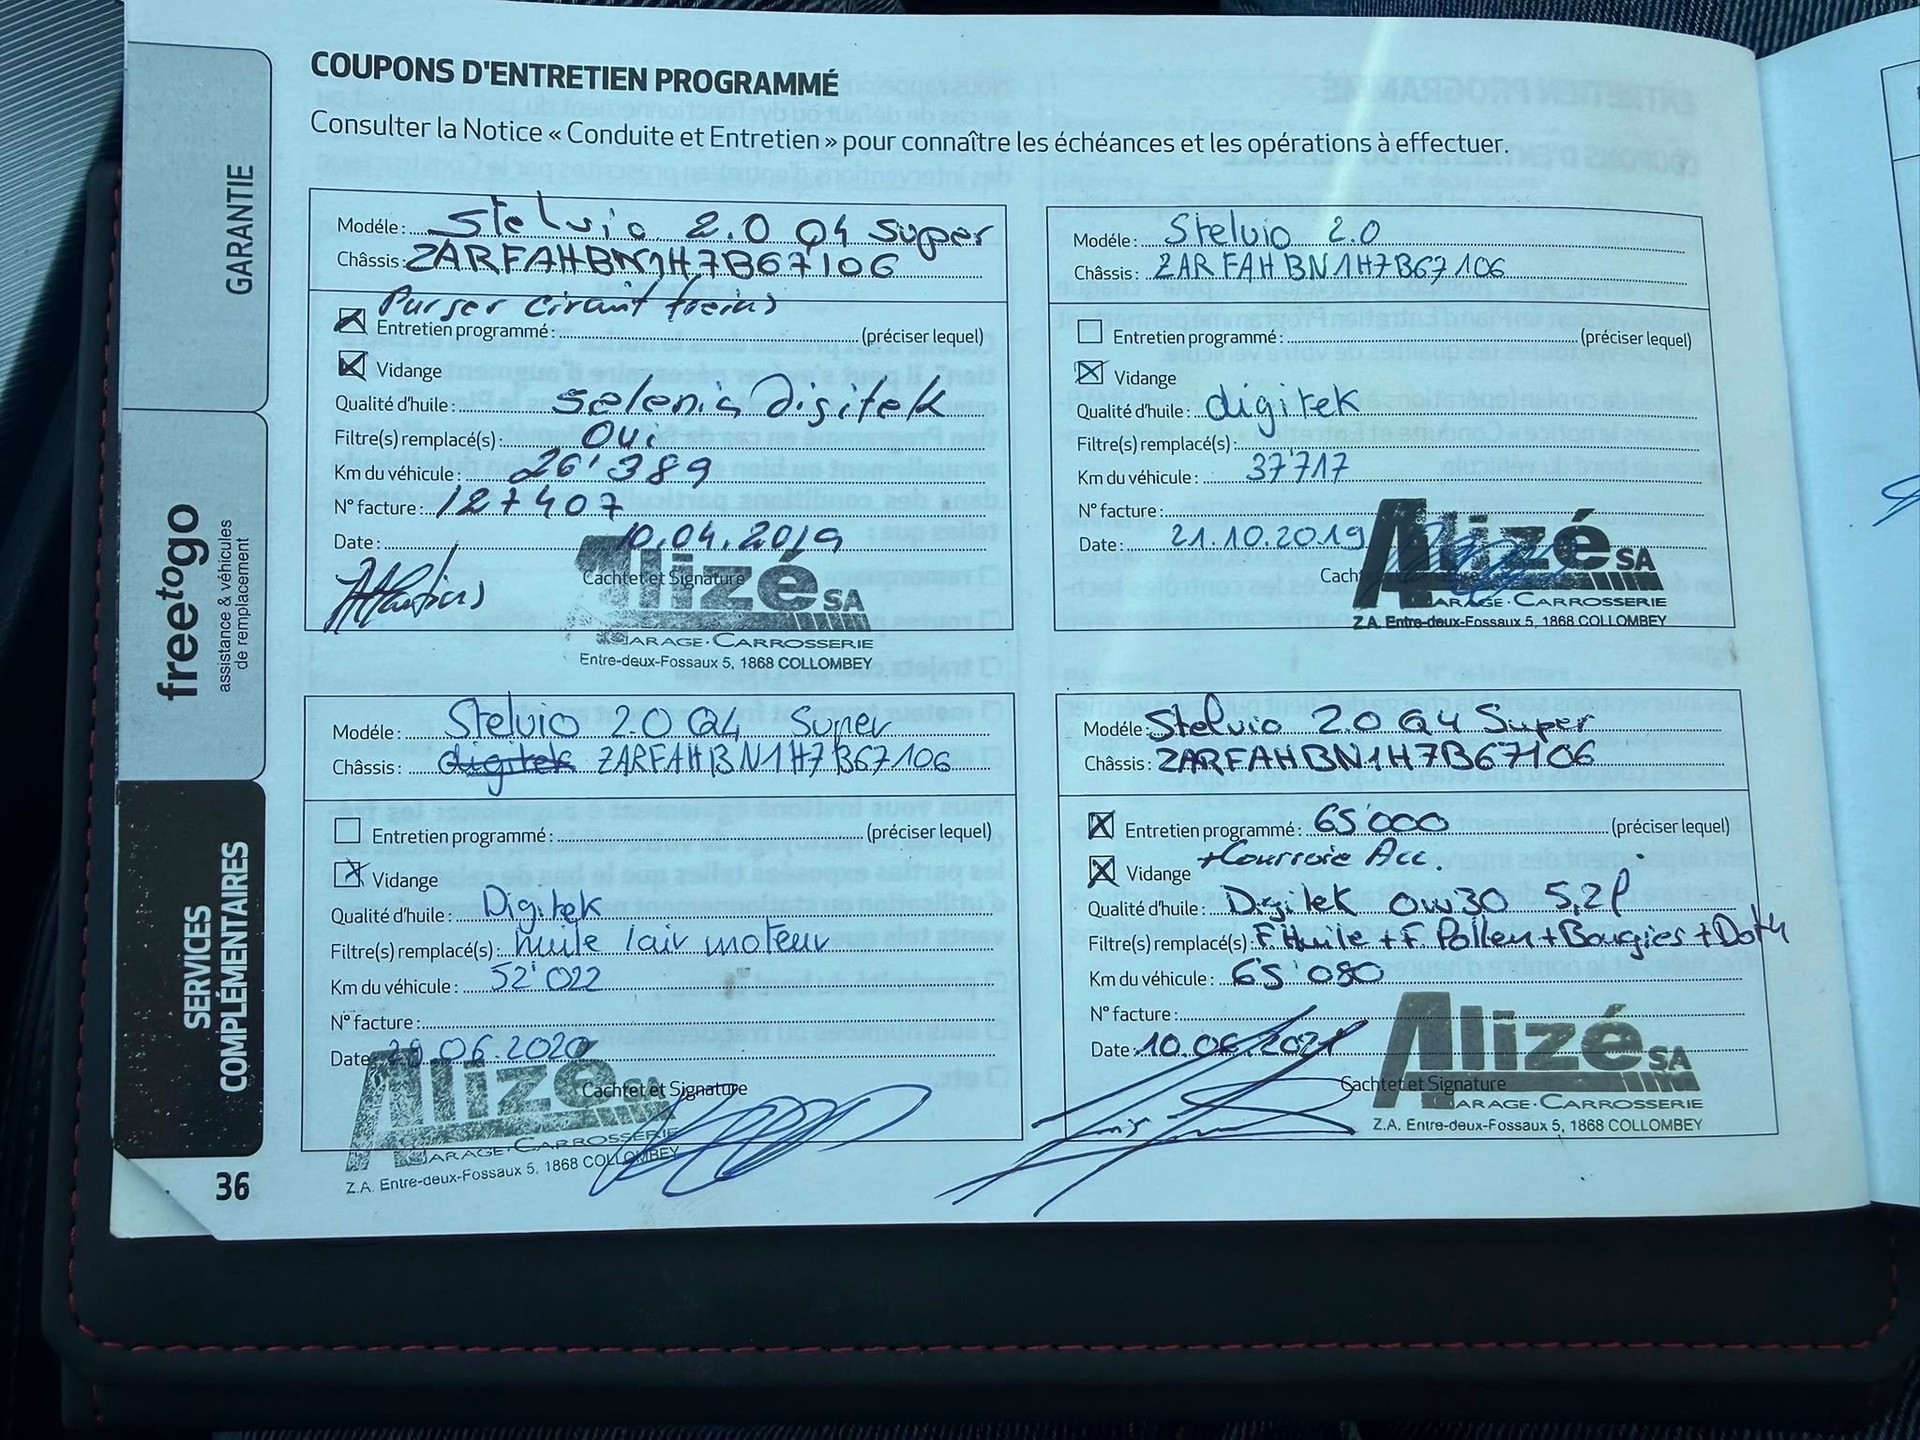 COUPONS D'ENTRETIEN PROGRAMMÉ
Consulter la Notice « Conduite et Entretien » pour connaître les échéances et les opérations à effectuer.
GARANTIE
freetogo
assistance & véhicules
de remplacement
SERVICES
COMPLÉMENTAIRES
36
Modéle : Stelvio 2.0 Q4 Super
Châssis : ZARFAHBN1H7B67106
Purger circuit freins
Entretien programmé : (préciser lequel)
Vidange
Qualité d'huile : Selenia Digitek
Filtre(s) remplacé(s) : Oui
Km du véhicule : 26'389
N° facture : 127407
Date : 10.04.2019
Cachtet et Signature
Alizé SA
GARAGE-CARROSSERIE
Entre-deux-Fossaux 5, 1868 COLLOMBEY
Modéle : Stelvio 2.0
Châssis : ZARFAHBN1H7B67106
Entretien programmé : (préciser lequel)
Vidange
Qualité d'huile : digitek
Filtre(s) remplacé(s) :
Km du véhicule : 37'717
N° facture :
Date : 21.10.2019
Alizé SA
GARAGE-CARROSSERIE
Z.A. Entre-deux-Fossaux 5, 1868 COLLOMBEY
Modéle : Stelvio 2.0 Q4 Super
Châssis : digitek ZARFAHBN1H7B67106
Entretien programmé : (préciser lequel)
Vidange
Qualité d'huile : Digitek
Filtre(s) remplacé(s) : huile / air moteur
Km du véhicule : 52'022
N° facture :
Date 29.06.2020
Cachtet et Signature
Alizé SA
GARAGE-CARROSSERIE
Z.A. Entre-deux-Fossaux 5, 1868 COLLOMBEY
Modéle : Stelvio 2.0 Q4 Super
Châssis : ZARFAHBN1H7B67106
Entretien programmé : 65'000 (préciser lequel)
Vidange +Courroie Acc.
Qualité d'huile : Digitek 0w30 5,2l
Filtre(s) remplacé(s) : F. Huile + F. Pollen + Bougies + Dot4
Km du véhicule : 65'080
N° facture :
Date : 10.06.2021
Cachtet et Signature
Alizé SA
GARAGE-CARROSSERIE
Z.A. Entre-deux-Fossaux 5, 1868 COLLOMBEY